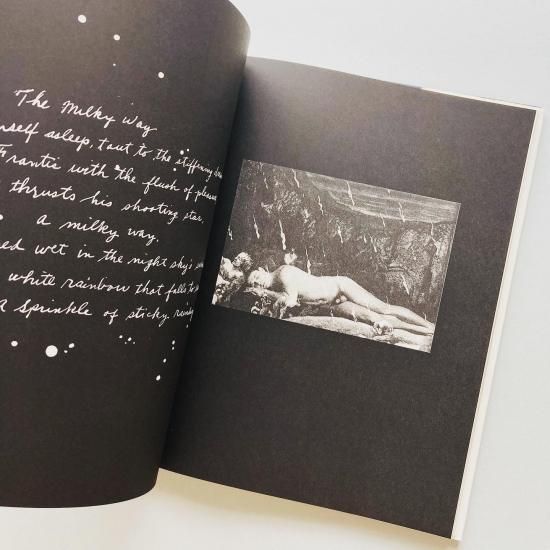 The Milky Way
self asleep, taut to the stiffening
Frantic with the flush of
thrusts his shooting star,
a milky way.
wet in the night sky's
white rainbow that falls to
A Sprinkle of sticky